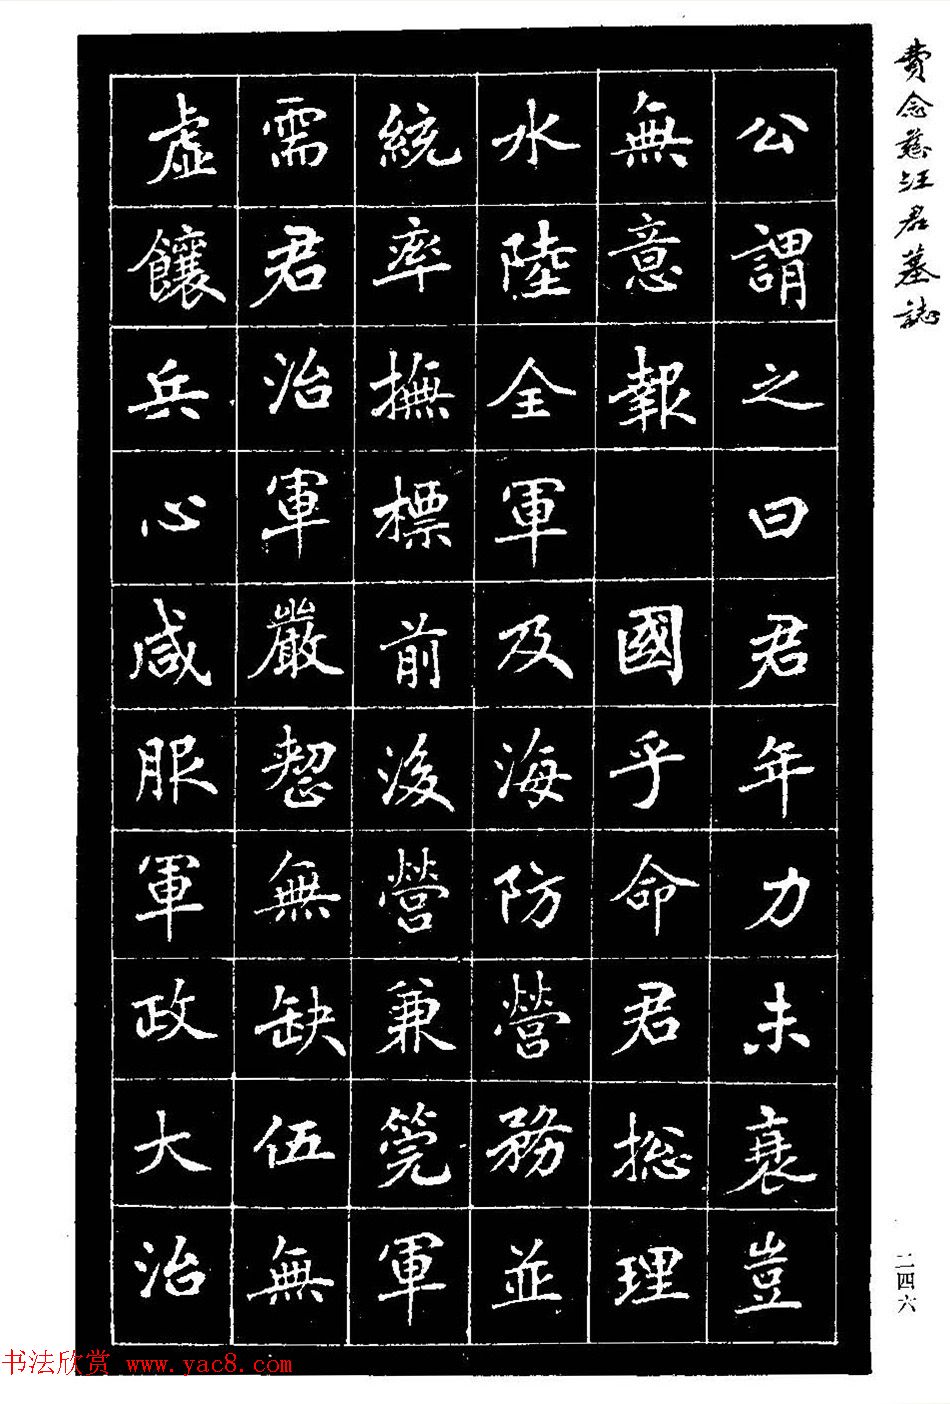 費念慈汪君墓誌
公謂之曰君年力未衰豈
無意報 國乎命君捴理
水陸全軍及海防營務並
統率撫標前後營兼筦軍
需君治軍嚴愨無缺伍無
虛饟兵心咸服軍政大治
二四六
书法欣赏 www.yac8.com